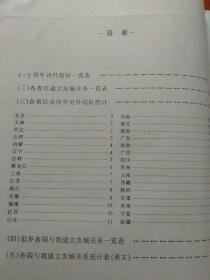 目 录
(一)历年对外结好一览表
(二)各省区建立友城关系一览表
(三)各省区市历年对外结好统计
北京 2 河南
天津 2 湖北
河北 2 湖南
山西 3 广东
内蒙 4 海南
辽宁 4 广西
吉林 5 四川
黑龙江 6 贵州
上海 6 云南
江苏 7 西藏
浙江 8 陕西
安徽 9 甘肃
福建 10 青海
江西 10 宁夏
山东 11 新疆
(四)世界各国与我建立友城关系一览表
(五)各国与我建立友城关系统计表(英文)